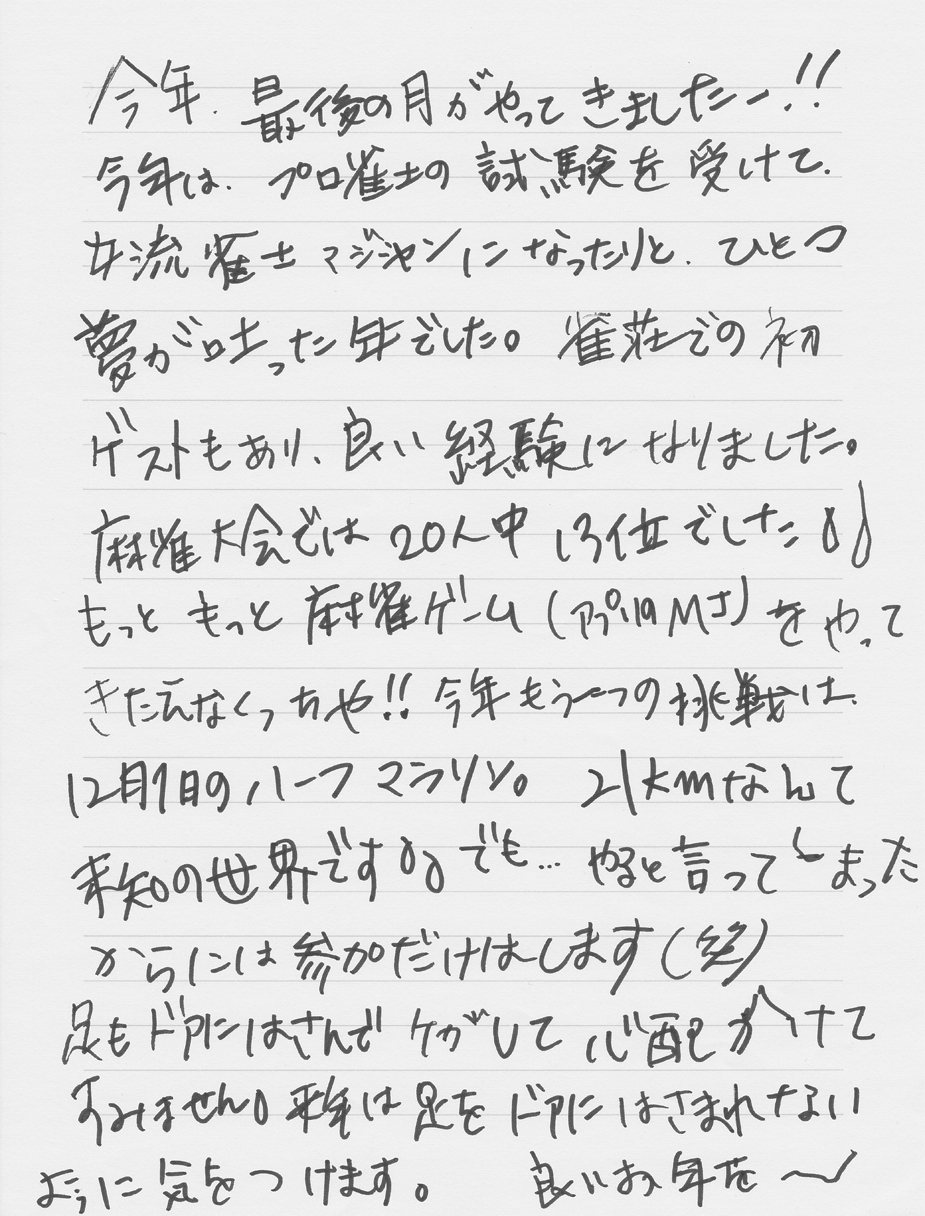 今年、最後の月がやってきましたー!!
今年は、プロ雀士の試験を受けて、
女流雀士マジシャンになったりと、ひとつ
夢が叶った年でした。雀荘での初
ゲストもあり、良い経験になりました。
麻雀大会では20人中13位でした
もっともっと麻雀ゲーム(アプリのMJ)をやって
きたえなくっちゃ!!今年もう一つの挑戦は、
12月7日のハーフマラソン。21kmなんて
未知の世界です でも…やると言ってしまった
からには参加だけはします(笑)
足もドアにはさんでケガして心配かけて
すみません。来年は足をドアにはさまれない
ように気をつけます。良いお年を〜